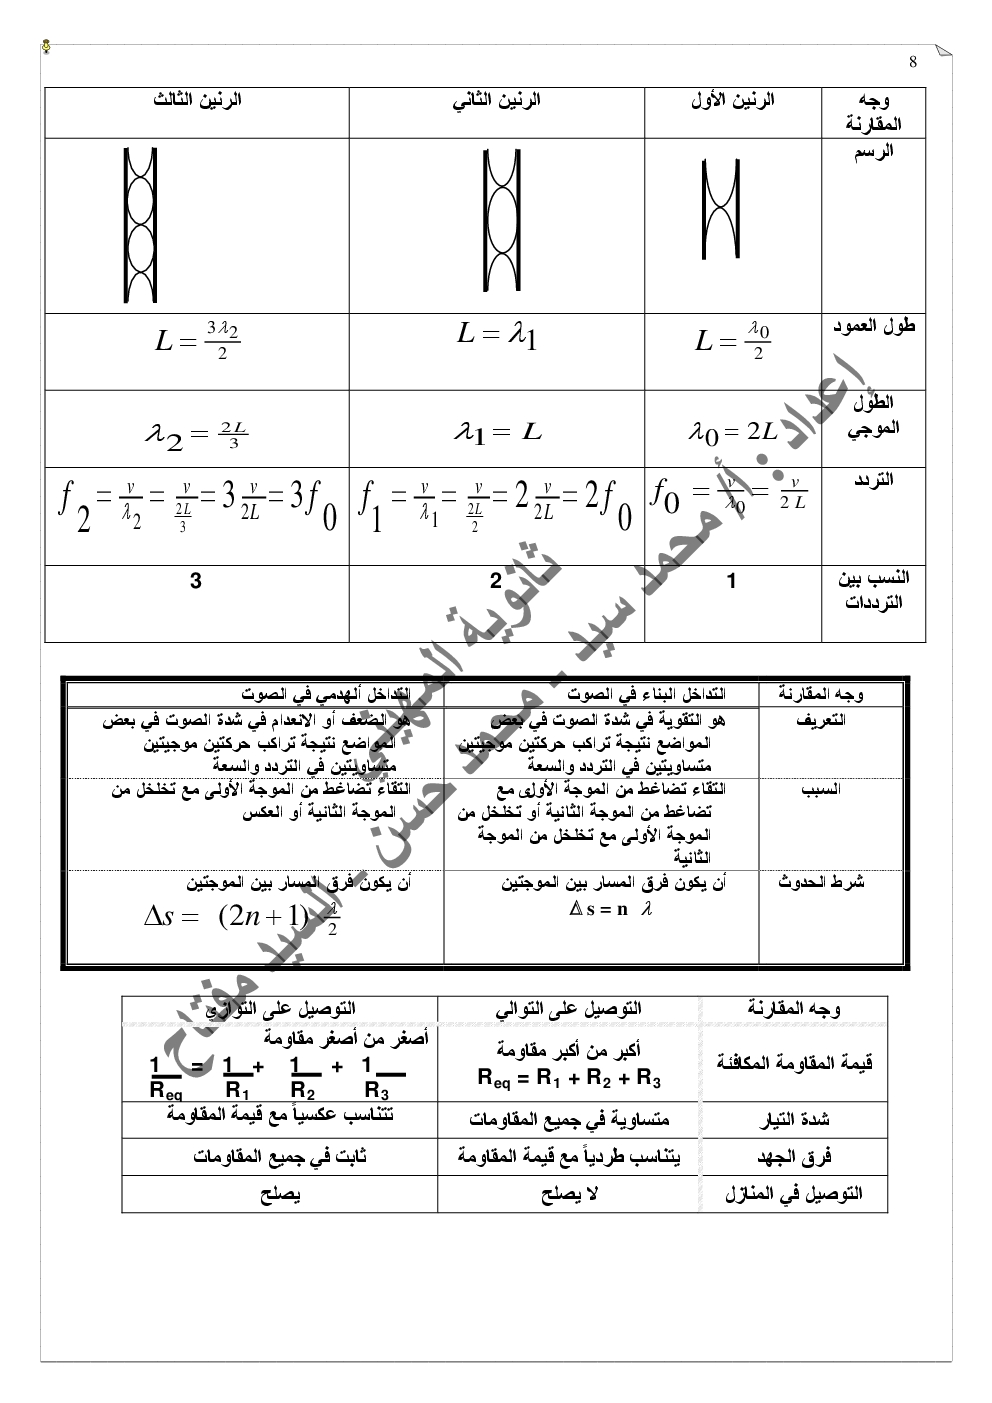 8
وجه المقارنة	الرنين الأول	الرنين الثاني	الرنين الثالث
الرسم
طول العمود	L = λ0/2	L = λ1	L = 3λ2/2
الطول الموجي	λ0 = 2L	λ1 = L	λ2 = 2L/3
التردد	f0 = v/λ0 = v/2L	f1 = v/λ1 = v/(2L/2) = 2 v/2L = 2f0	f2 = v/λ2 = v/(2L/3) = 3 v/2L = 3f0
النسب بين الترددات	1	2	3
وجه المقارنة	التداخل البناء في الصوت	التداخل ألهدمي في الصوت
التعريف	هو التقوية في شدة الصوت في بعض المواضع نتيجة تراكب حركتين موجيتين متساويتين في التردد والسعة	هو الضعف أو الانعدام في شدة الصوت في بعض المواضع نتيجة تراكب حركتين موجيتين متساويتين في التردد والسعة
السبب	التقاء تضاغط من الموجة الأولى مع تضاغط من الموجة الثانية أو تخلخل من الموجة الأولى مع تخلخل من الموجة الثانية	التقاء تضاغط من الموجة الأولى مع تخلخل من الموجة الثانية أو العكس
شرط الحدوث	أن يكون فرق المسار بين الموجتين Δ s = n λ	أن يكون فرق المسار بين الموجتين Δs = (2n+1) λ/2
وجه المقارنة	التوصيل على التوالي	التوصيل على التوازي
قيمة المقاومة المكافئة	أكبر من أكبر مقاومة Req = R1 + R2 + R3	أصغر من أصغر مقاومة 1/Req = 1/R1 + 1/R2 + 1/R3
شدة التيار	متساوية في جميع المقاومات	تتناسب عكسياً مع قيمة المقاومة
فرق الجهد	يتناسب طردياً مع قيمة المقاومة	ثابت في جميع المقاومات
التوصيل في المنازل	لا يصلح	يصلح
إعداد : أ/ محمد سيد - محمد حسن - السيد مفتاح
ثانوية المهيني